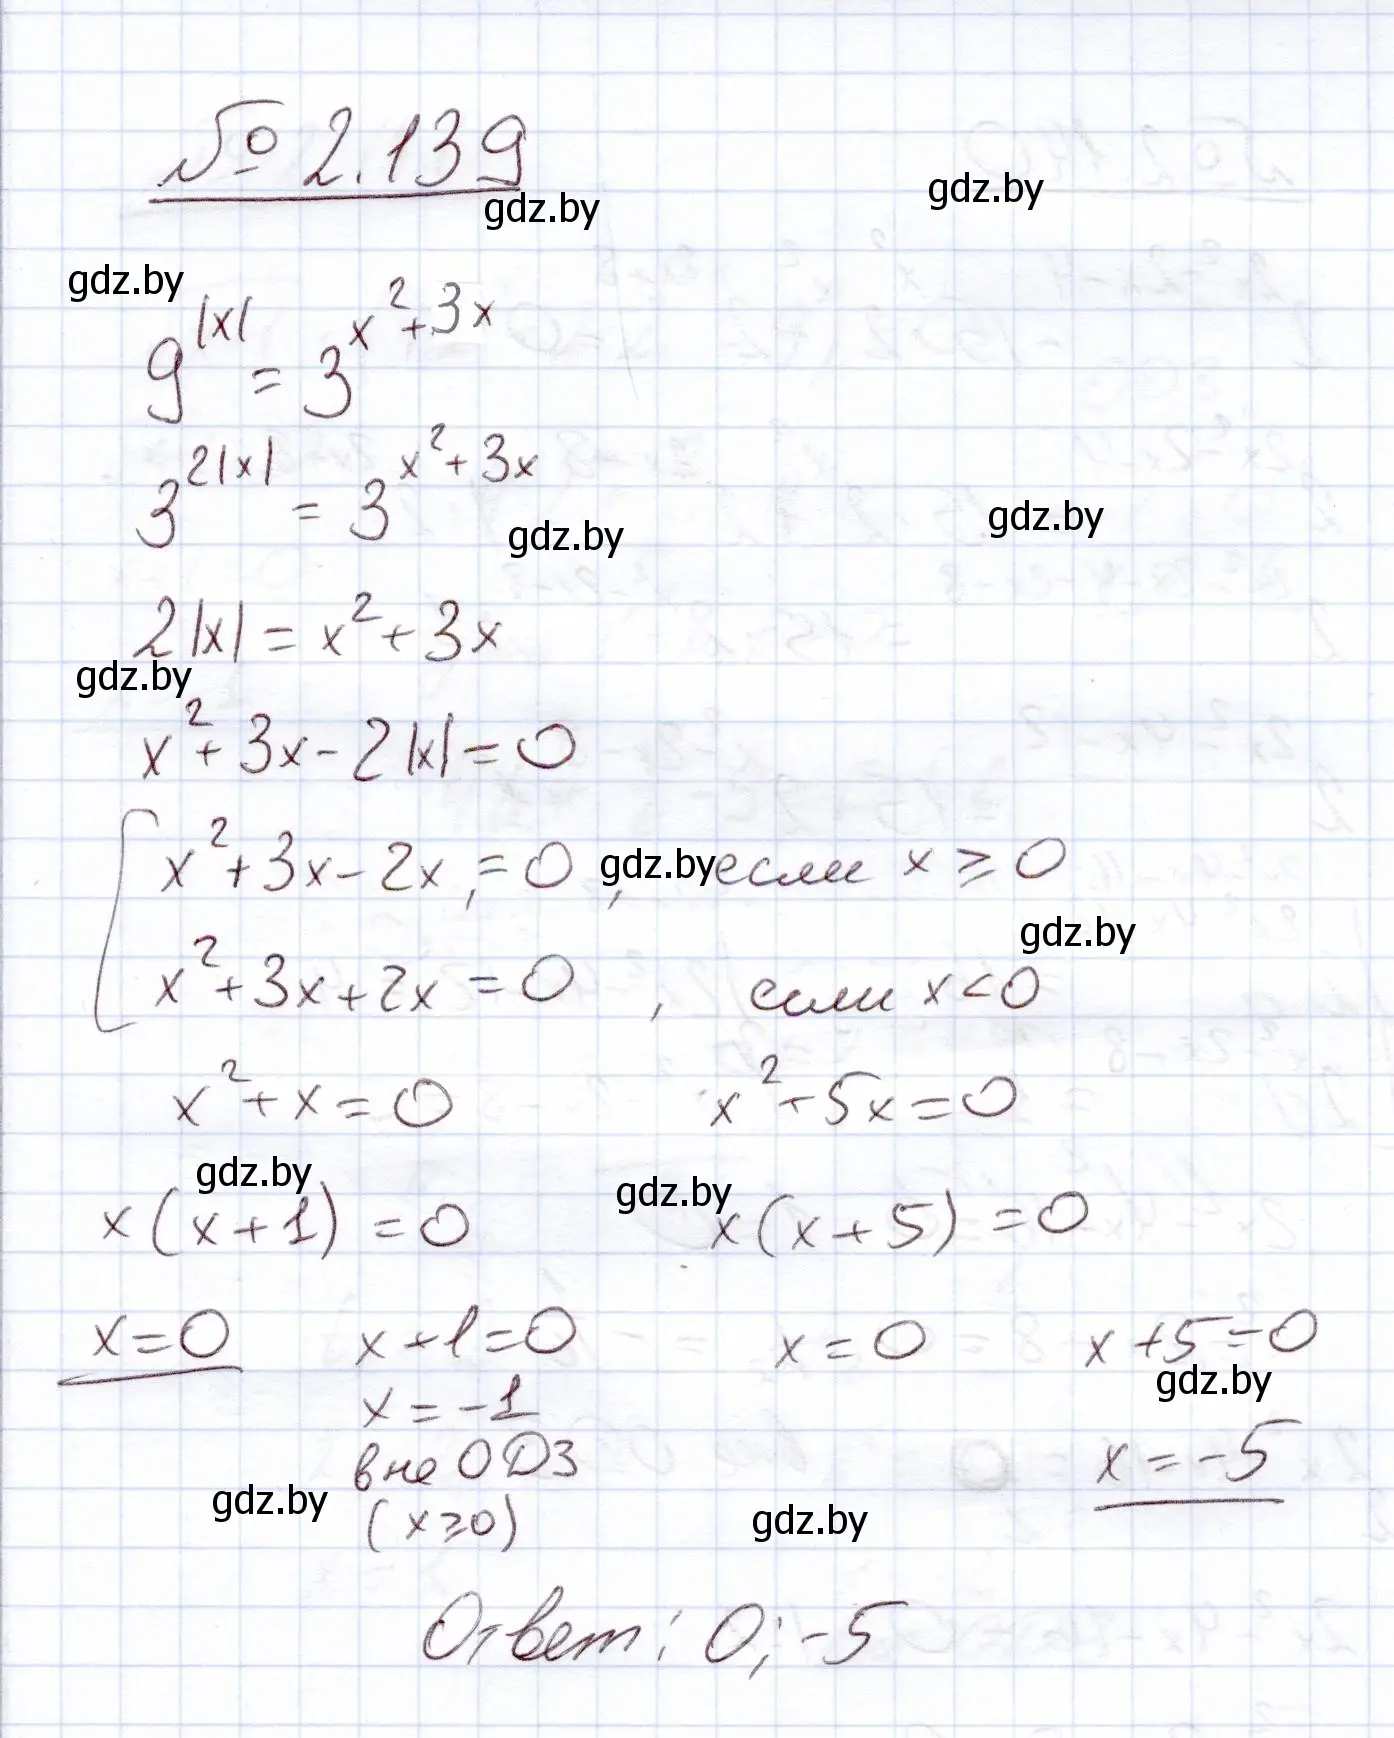 № 2.139
gdz.by
gdz.by
gdz.by
9^|x| = 3^(x²+3x)
3^(2|x|) = 3^(x²+3x)
gdz.by
gdz.by
2|x| = x² + 3x
gdz.by
x² + 3x - 2|x| = 0
x² + 3x - 2x = 0, gdz.by если x ≥ 0
gdz.by
x² + 3x + 2x = 0, если x < 0
x² + x = 0 x² + 5x = 0
gdz.by gdz.by
x(x+1) = 0 x(x+5) = 0
x = 0 x + 1 = 0 x = 0 x + 5 = 0
gdz.by
x = -1 x = -5
вне ОДЗ
gdz.by gdz.by
(x ≥ 0)
Ответ: 0; -5